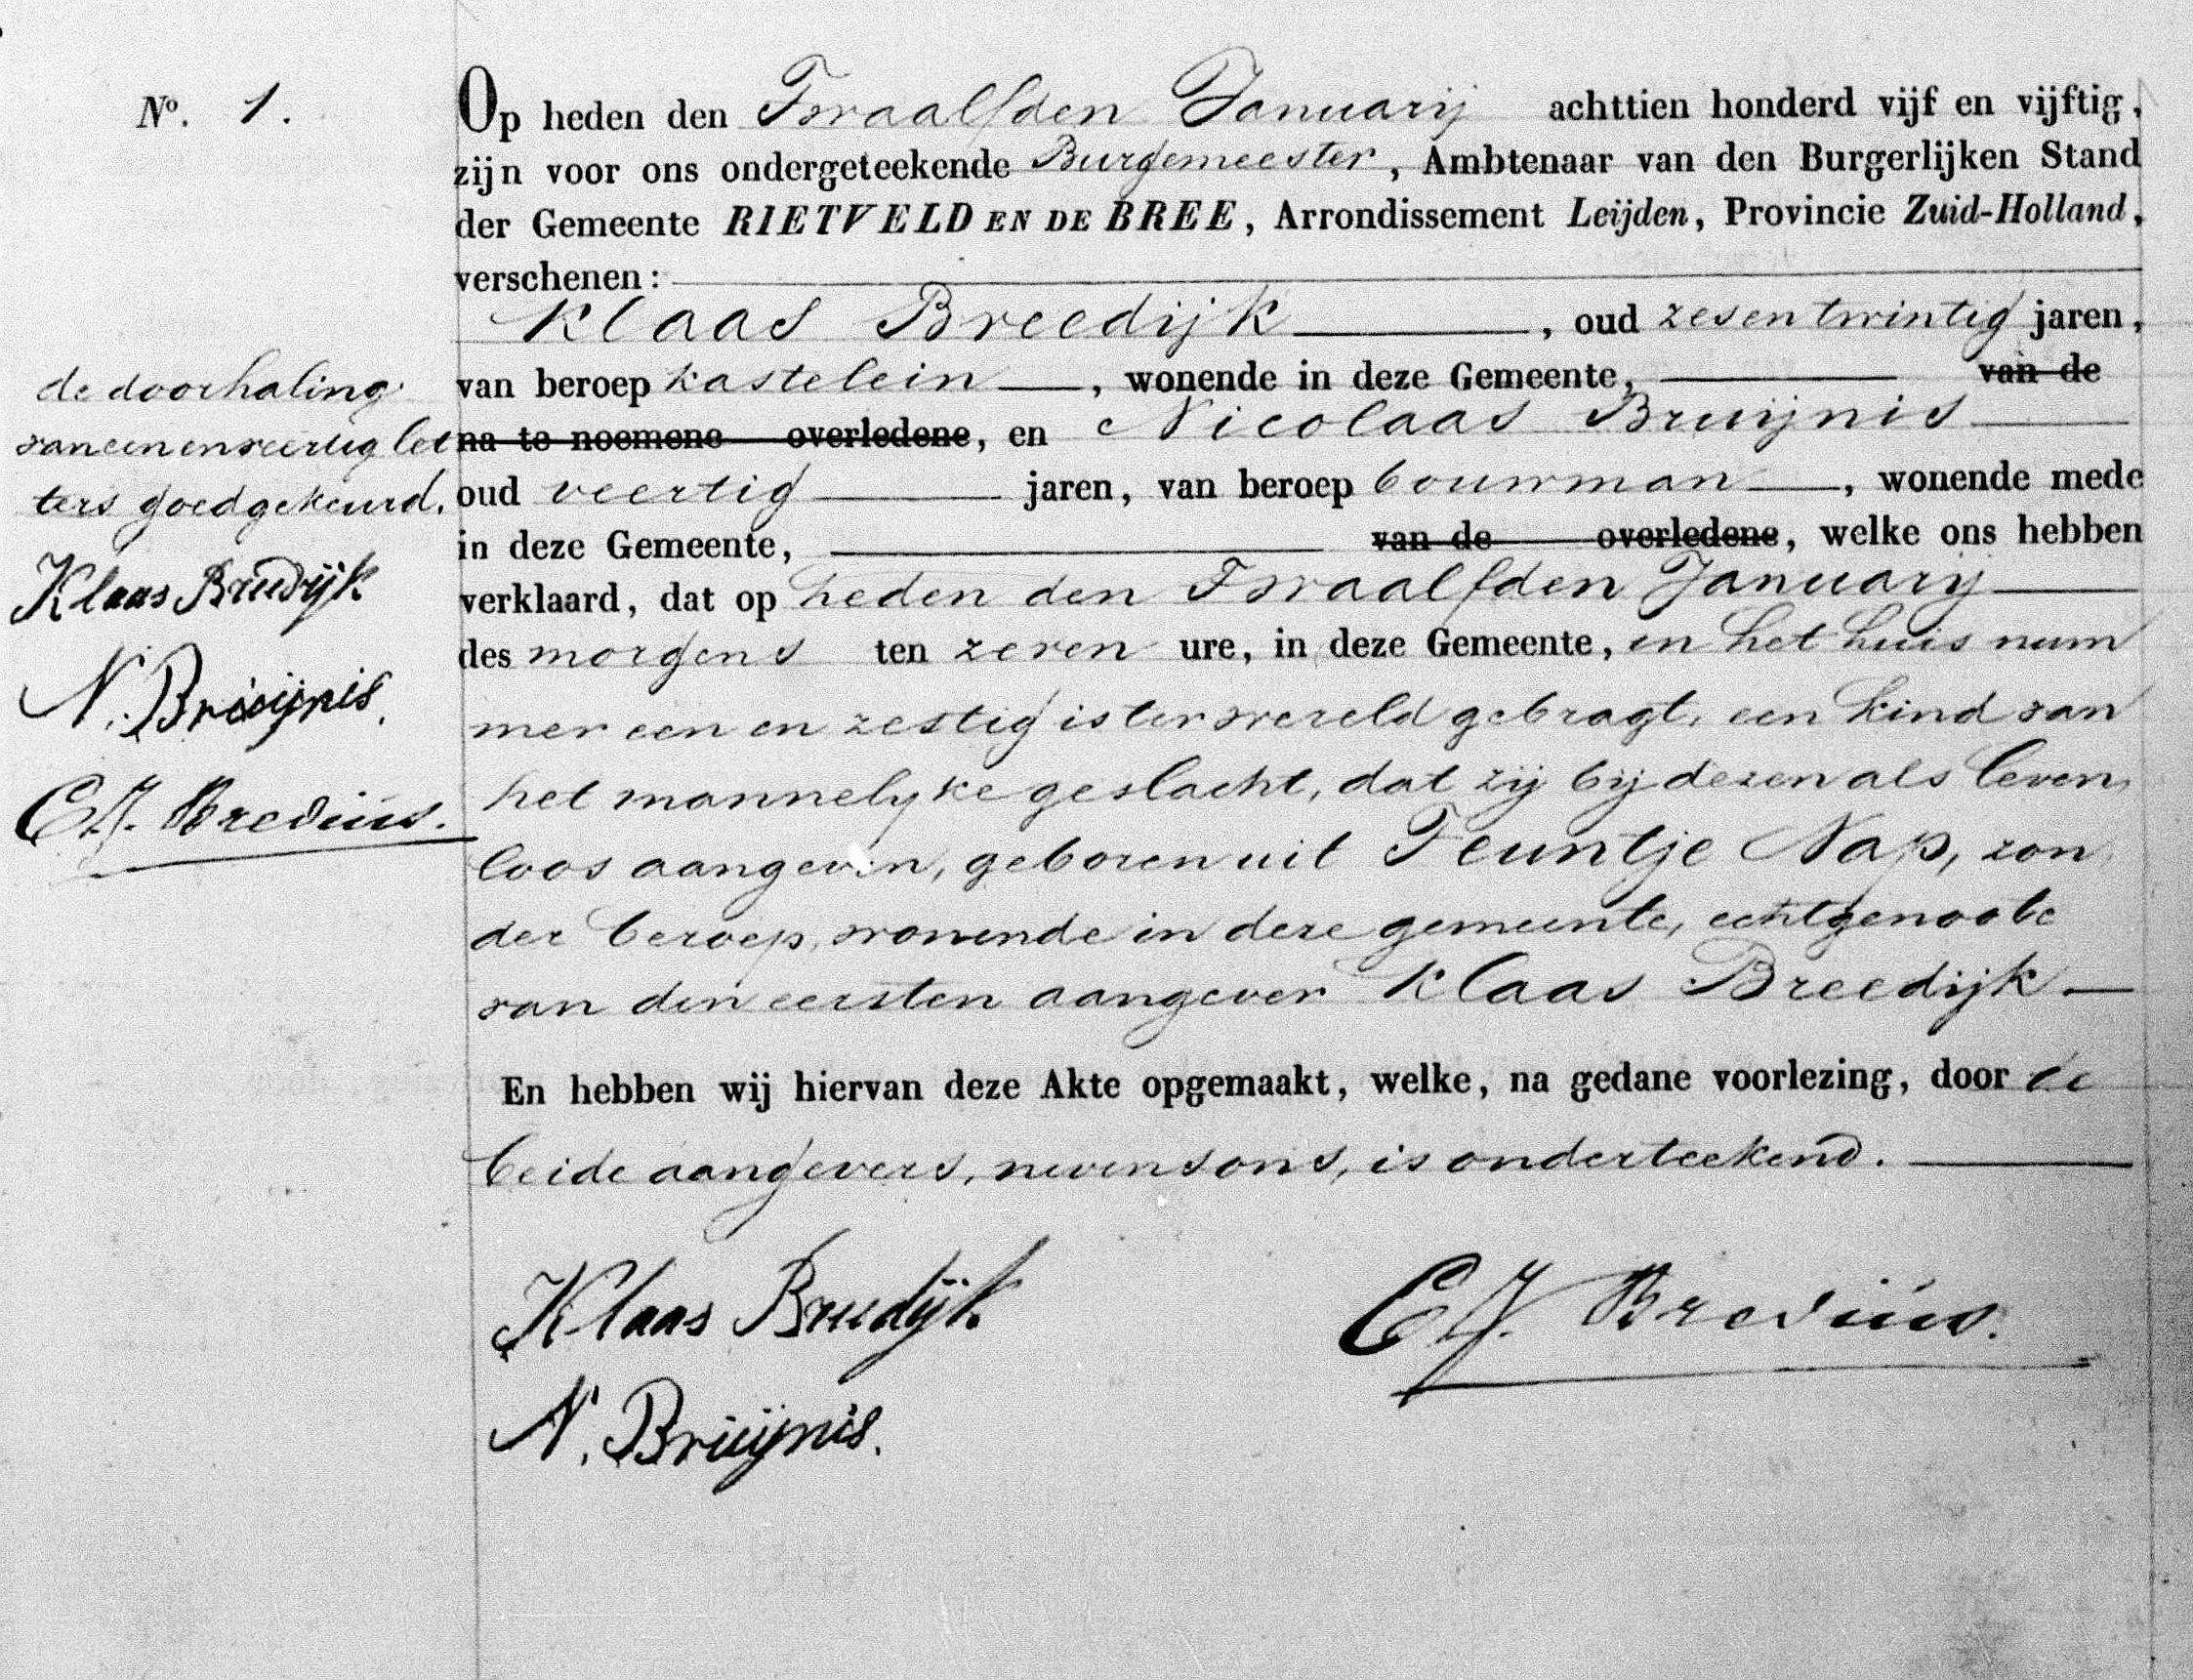 No. 1.
Op heden den Twaalfden Januarij achttien honderd vijf en vijftig,
zijn voor ons ondergeteekende Burgemeester, Ambtenaar van den Burgerlijken Stand
der Gemeente RIETVELD EN DE BREE, Arrondissement Leijden, Provincie Zuid-Holland,
verschenen:
Klaas Breedijk, oud zesentwintig jaren,
van beroep kastelein, wonende in deze Gemeente, van de
na te noemene overledene, en Nicolaas Bruijnis
oud veertig jaren, van beroep bouwman, wonende mede
in deze Gemeente, van de overledene, welke ons hebben
verklaard, dat op heden den Twaalfden Januarij
des morgens ten zeven ure, in deze Gemeente, in het huis num
mer een en zestig is ter wereld gebragt, een kind van
het mannelyke geslacht, dat zij bij dezen als leven,
loos aangeven, geboren uit Teuntje Nap, zon
der beroep, wonende in deze gemeente, echtgenoote
van den eersten aangever Klaas Breedijk
En hebben wij hiervan deze Akte opgemaakt, welke, na gedane voorlezing, door de
beide aangevers, nevens ons, is onderteekend.
Klaas Breedijk
N. Bruijnis.
EJ. Bredius.
de doorhaling
van een en veertig let
ters goedgekeurd.
Klaas Breedijk
N. Bruijnis.
EJ. Bredius.